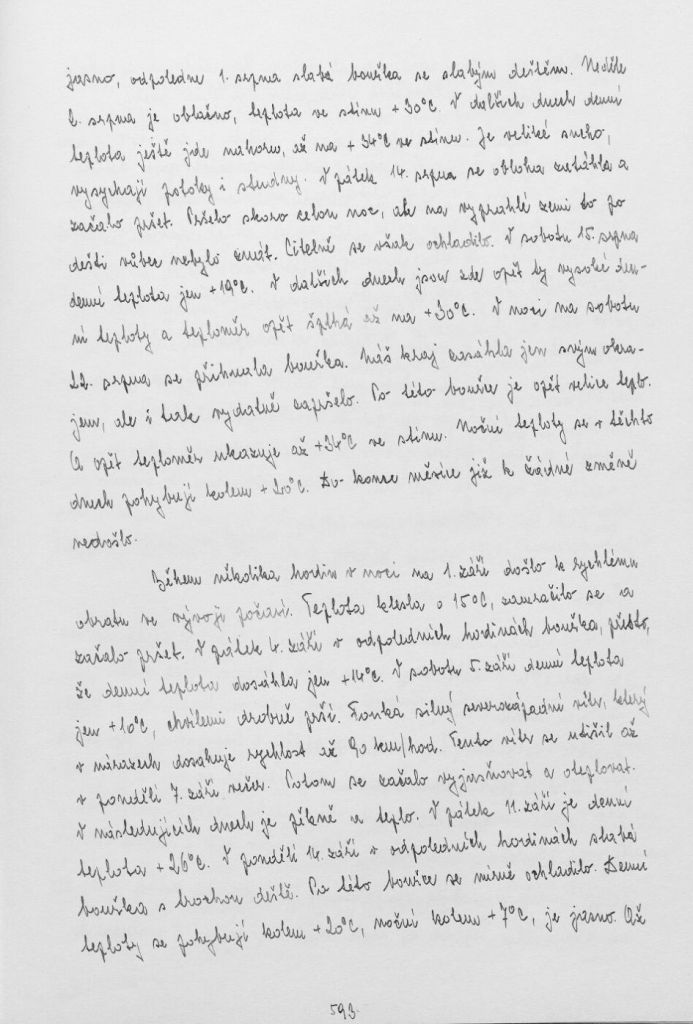 jasno, odpoledne 1. srpna slabá bouřka se slabým deštěm. Neděle
2. srpna je oblačno, teplota ve stínu +30°C. V dalších dnech denní
teplota ještě jde nahoru, až na +34°C ve stínu. Je veliké sucho,
vysychají potoky i studny. V pátek 14. srpna se obloha zatáhla a
začalo pršet. Pršelo skoro celou noc, ale na vyprahlé zemi to po
dešti vůbec nebylo znát. Citelně se však ochladilo. V sobotu 15. srpna
denní teplota jen +19°C. V dalších dnech jsou zde opět ty vysoké den-
ní teploty a teploměr opět šplhá až na +30°C. V noci na sobotu
22. srpna se přihnala bouřka. Náš kraj zasáhla jen svým okra-
jem, ale i tak vydatně zapršelo. Po této bouřce je opět velice teplo.
A opět teploměr ukazuje až +34°C ve stínu. Noční teploty se v těchto
dnech pohybují kolem +20°C. Do konce měsíce již k žádné změně
nedošlo.
Během několika hodin v noci na 1. září došlo k rychlému
obratu ve vývoji počasí. Teplota klesla o 15°C, zamračilo se a
začalo pršet. V pátek 4. září v odpoledních hodinách bouřka, přesto,
že denní teplota dosáhla jen +14°C. V sobotu 5. září denní teplota
jen +10°C, chvílemi drobně prší. Fouká silný severozápadní vítr, který
v nárazech dosahuje rychlost až 90 km/hod. Tento vítr se utišil až
v pondělí 7. září večer. Potom se začalo vyjasňovat a oteplovat.
V následujících dnech je pěkně a teplo. V pátek 11. září je denní
teplota +26°C. V pondělí 14. září v odpoledních hodinách slabá
bouřka s trochou deště. Po této bouřce se mírně ochladilo. Denní
teploty se pohybují kolem +20°C, noční kolem +7°C, je jasno. Až
593